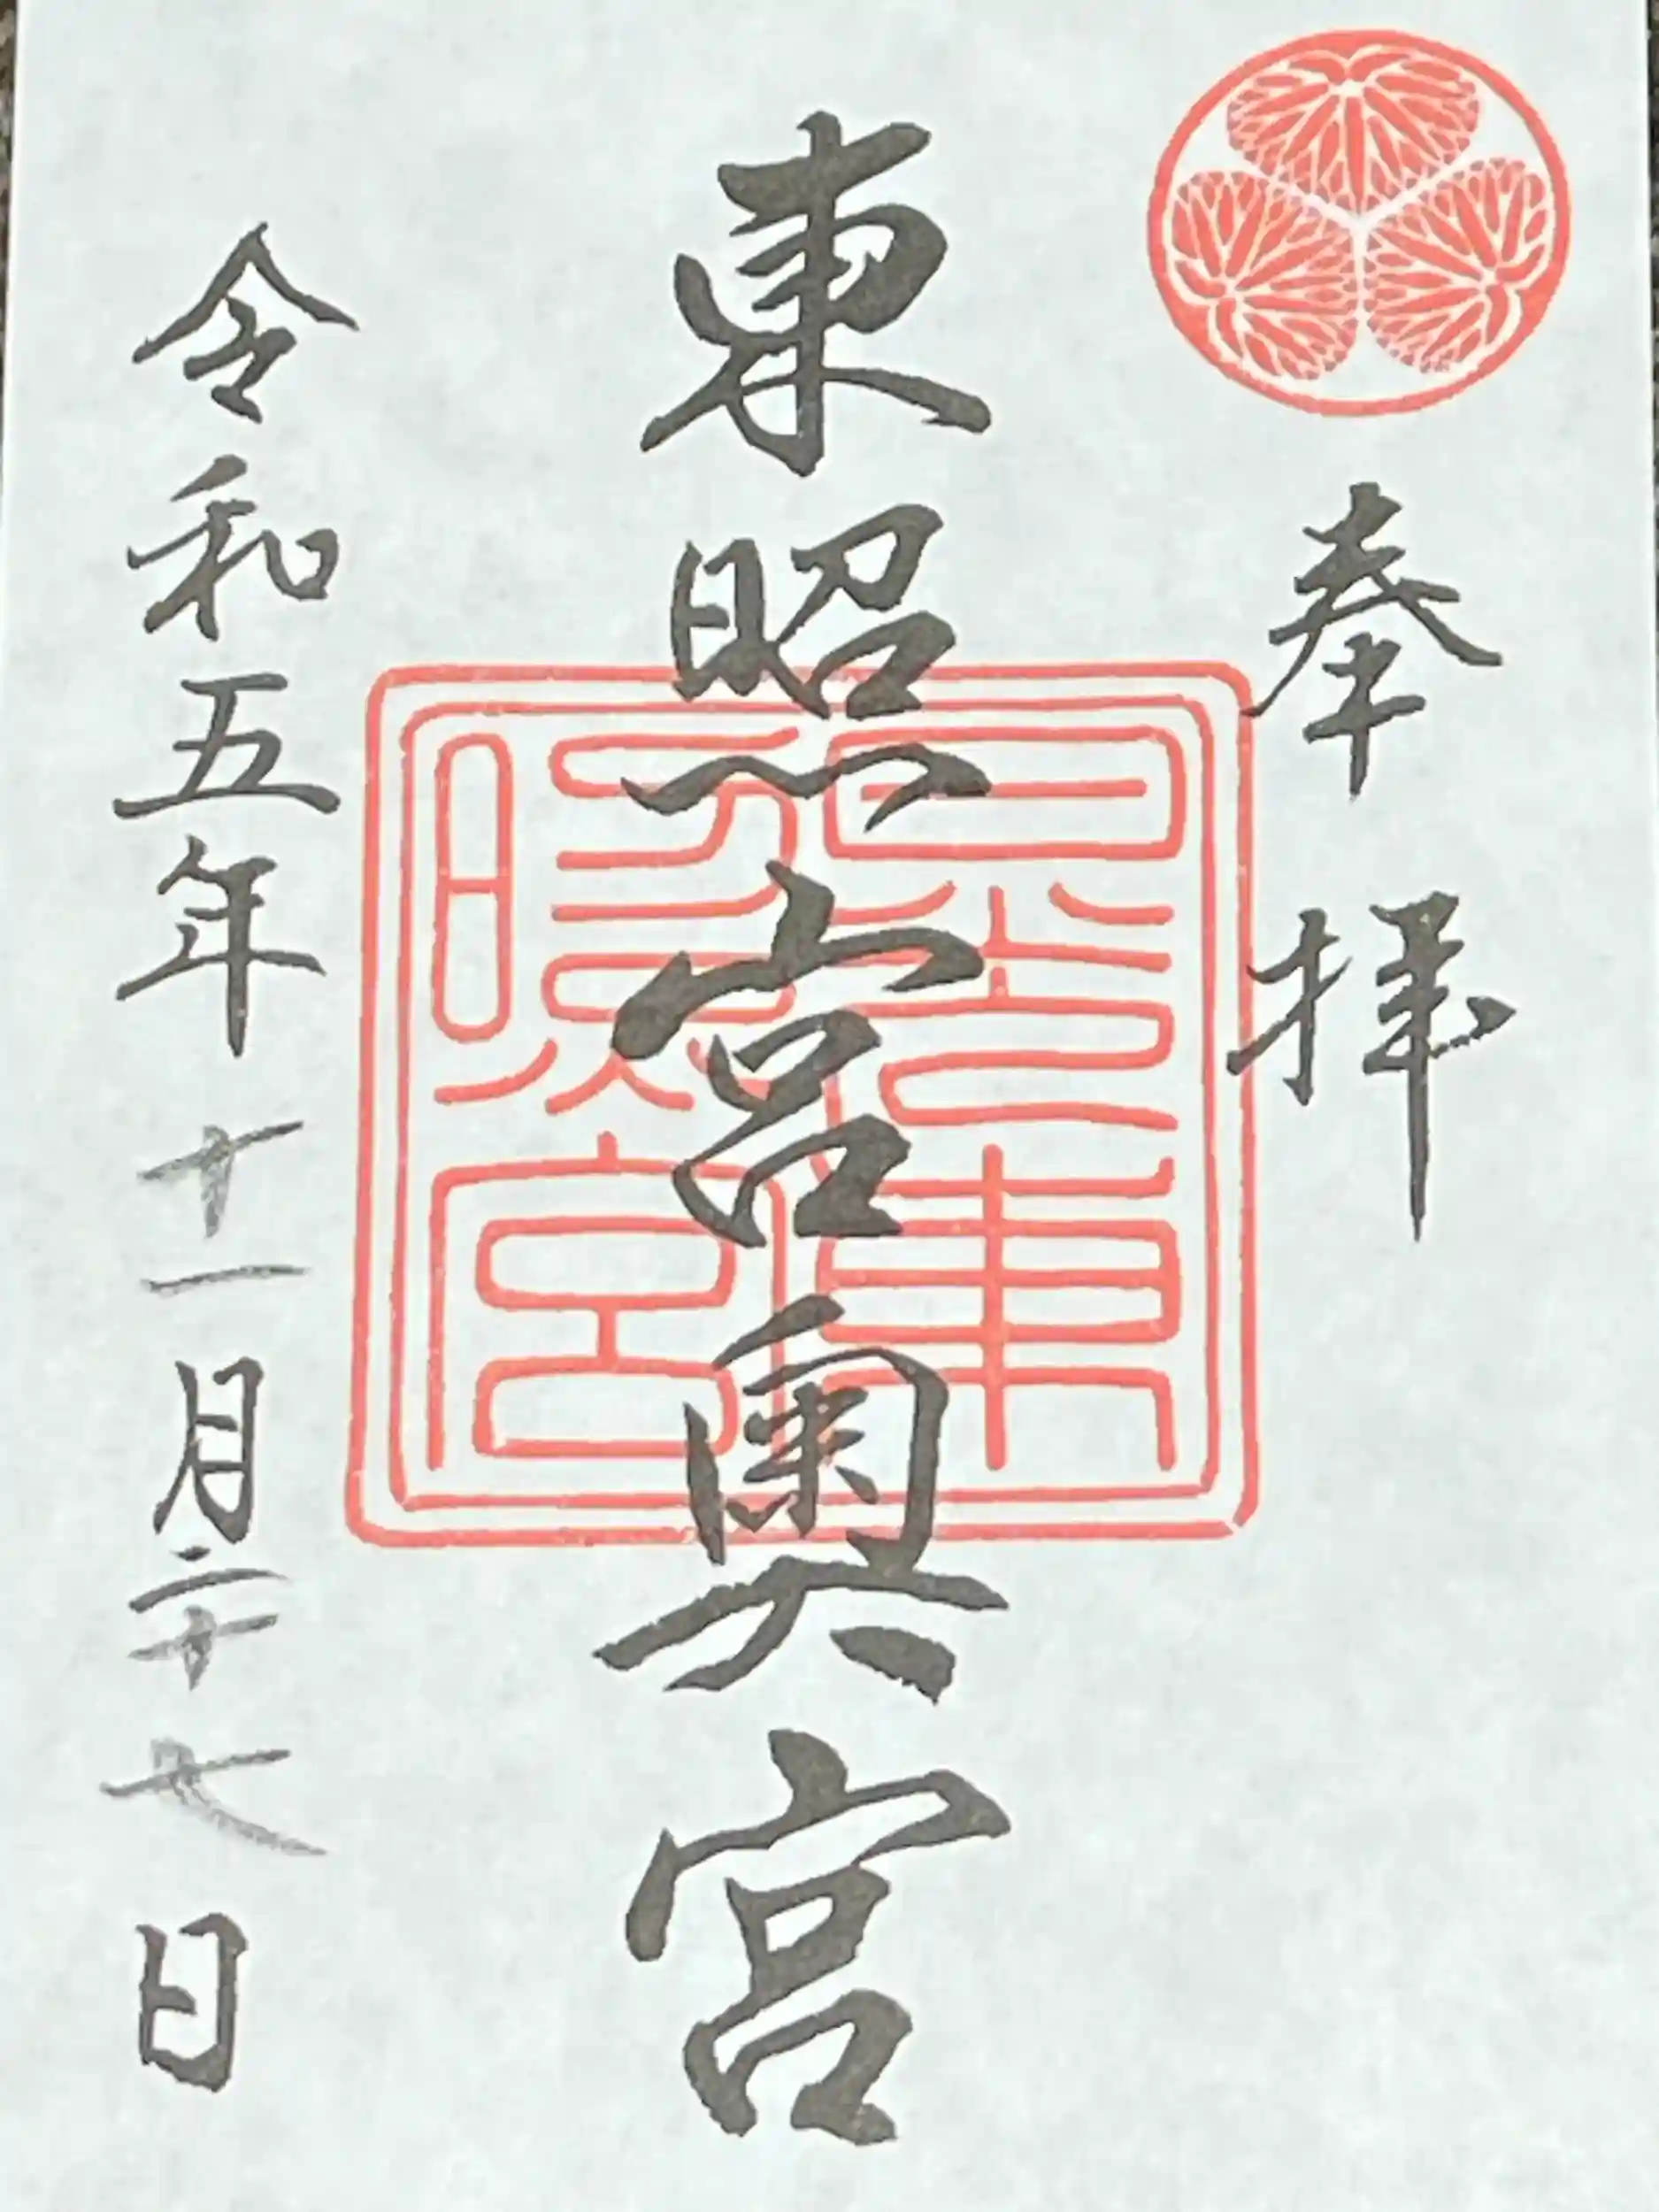 奉拝
東照宮奥宮
令和五年十一月二十七日